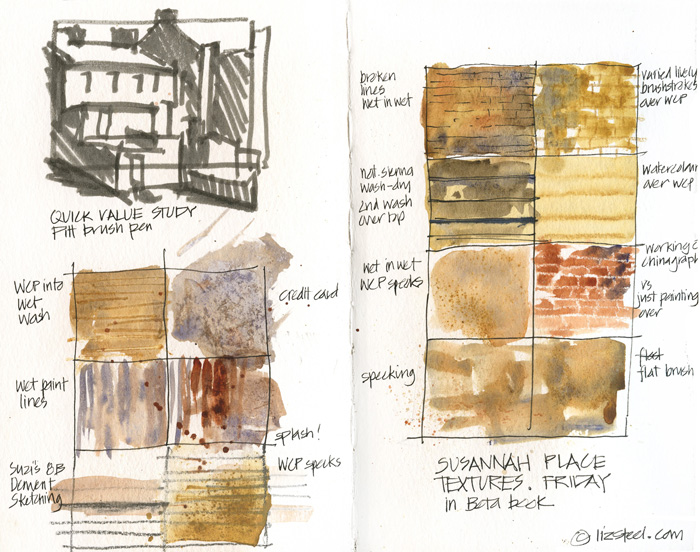 QUICK VALUE STUDY
Pitt brush pen
WCP into
wet
wash
credit card
wet paint
lines
splash!
Suzi's 8B
Dement
Sketching
WCP specks
broken
lines
wet in wet
varied lively
brushstrokes
over WCP
nat. sienna
wash-dry
2nd wash
over top
watercolour
over WCP
wet in wet
WCP specks
working
chinagraph
vs
just painting
over
specking
flat brush
SUSANNAH PLACE
TEXTURES. FRIDAY
in Beta book
© lizsteel.com